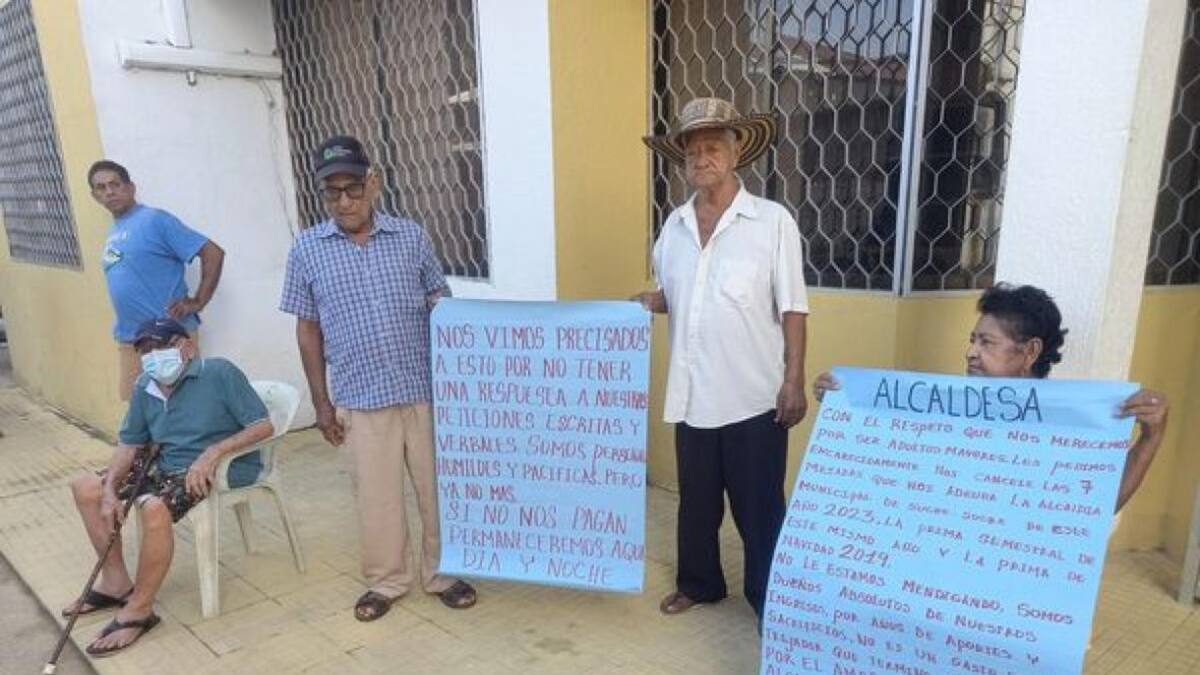 NOS VIMOS PRECISADOS
A ESTO POR NO TENER
UNA RESPUESTA A NUESTRAS
PETICIONES ESCRITAS Y
VERBALES. SOMOS PERSONAS
HUMILDES Y PACIFICAS, PERO
YA NO MAS.
SI NO NOS PAGAN
PERMANECEREMOS AQUI
DIA Y NOCHE
ALCALDESA
CON EL RESPETO QUE NOS MERECEMOS
POR SER ADULTOS MAYORES, LES PEDIMOS
ENCARECIDAMENTE NOS CANCELE LAS 7
MESADAS QUE NOS ADEUDA LA ALCALDIA
MUNICIPAL DE SUCRE SUCRE DE ESTE
AÑO 2023, LA PRIMA SEMESTRAL DE
ESTE MISMO AÑO Y LA PRIMA DE
NAVIDAD 2019.
NO LE ESTAMOS MENDIGANDO, SOMOS
DUEÑOS ABSOLUTOS DE NUESTROS
INGRESOS, POR AÑOS DE APORTES Y
SACRIFICIOS. NO ES UN GASTO
QUE
POR EL